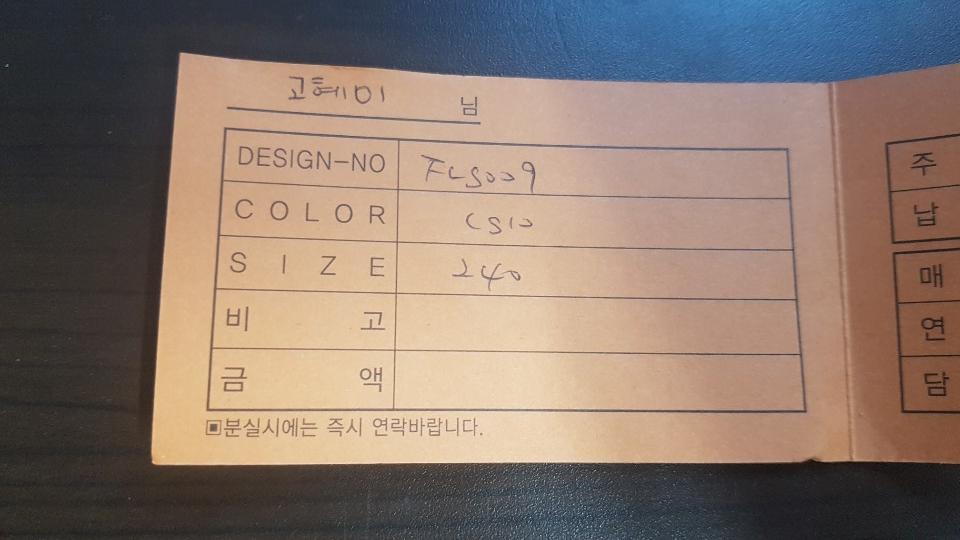 고혜미 님
DESIGN-NO FLS009
COLOR CS10
SIZE 240
비고
금액
▣분실시에는 즉시 연락바랍니다.
주
납
매
연
담